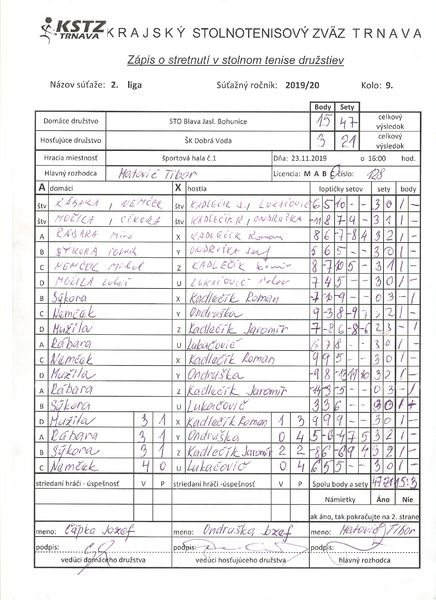 KSTZ TRNAVA KRAJSKÝ STOLNOTENISOVÝ ZVÄZ TRNAVA
Zápis o stretnutí v stolnom tenise družstiev
Názov súťaže: 2. liga Súťažný ročník: 2019/20 Kolo: 9.
Body Sety
Domáce družstvo STO Blava Jasl. Bohunice 15 47 celkový výsledok
Hosťujúce družstvo ŠK Dobrá Voda 3 21 celkový výsledok
Hracia miestnosť športová hala č.1 Dňa: 23.11.2019 o 16:00 hod.
Hlavný rozhodca Matovič Tibor Licencia: M A B C číslo: 128
A domáci X hostia loptičky setov sety body
štv RÁBARA, NEMČEK štv KADLEČÍK J., LUKAČOVIČ 3 0 1 -
štv MUŽILA, SÝKORA štv KADLEČÍK R., ONDRUŠKA -11 8 7 9 - 3 1 1 -
A RÁBARA Miro X KADLEČÍK Roman 8 6 -7 -8 4 3 2 1 -
B SÝKORA Y ONDRUŠKA 5 6 5 - - 3 0 1 -
C NEMČEK Michal Z KADLEČÍK 8 -7 10 5 - 3 1 1 -
D MUŽILA U LUKAČOVIČ 7 4 5 - - 3 0 1 -
B Sýkora X Kadlečík Roman 0 3 - 1
C Nemček Y Ondruška 9 -3 8 9 - 3 1 -
D Mužila Z Kadlečík Jaromír 7 -8 6 -8 -6 2 3 - 1
A Rábara U Lukačovič 3 0 1 -
C Nemček X Kadlečík Roman 9 9 5 - - 3 0 1 -
D Mužila Y Ondruška 3 2 1 -
A Rábara Z Kadlečík Jaromír 0 3 - 1
B Sýkora U Lukačovič 3 3 6 - - 3 0 1 -
D Mužila 3 1 X Kadlečík Roman 1 3 9 9 9 - - 3 0 1 -
A Rábara 3 1 Y Ondruška 0 4 5 -6 -4 7 5 3 2 1 -
B Sýkora 3 1 Z Kadlečík Jaromír 2 2 -8 6 -6 9 4 3 2 1 -
C Nemček 4 0 U Lukačovič 0 4 6 5 5 - - 3 0 1 -
striedaní hráči - úspešnosť V P striedaní hráči - úspešnosť V P Spolu body a sety 47:21 15:3
Námietky Áno Nie
ak áno, tak pokračujte na 2. strane
meno: Čápka Jozef meno: Ondruška Jozef meno: Matovič Tibor
podpis: podpis: podpis:
vedúci domáceho družstva vedúci hosťujúceho družstva hlavný rozhodca